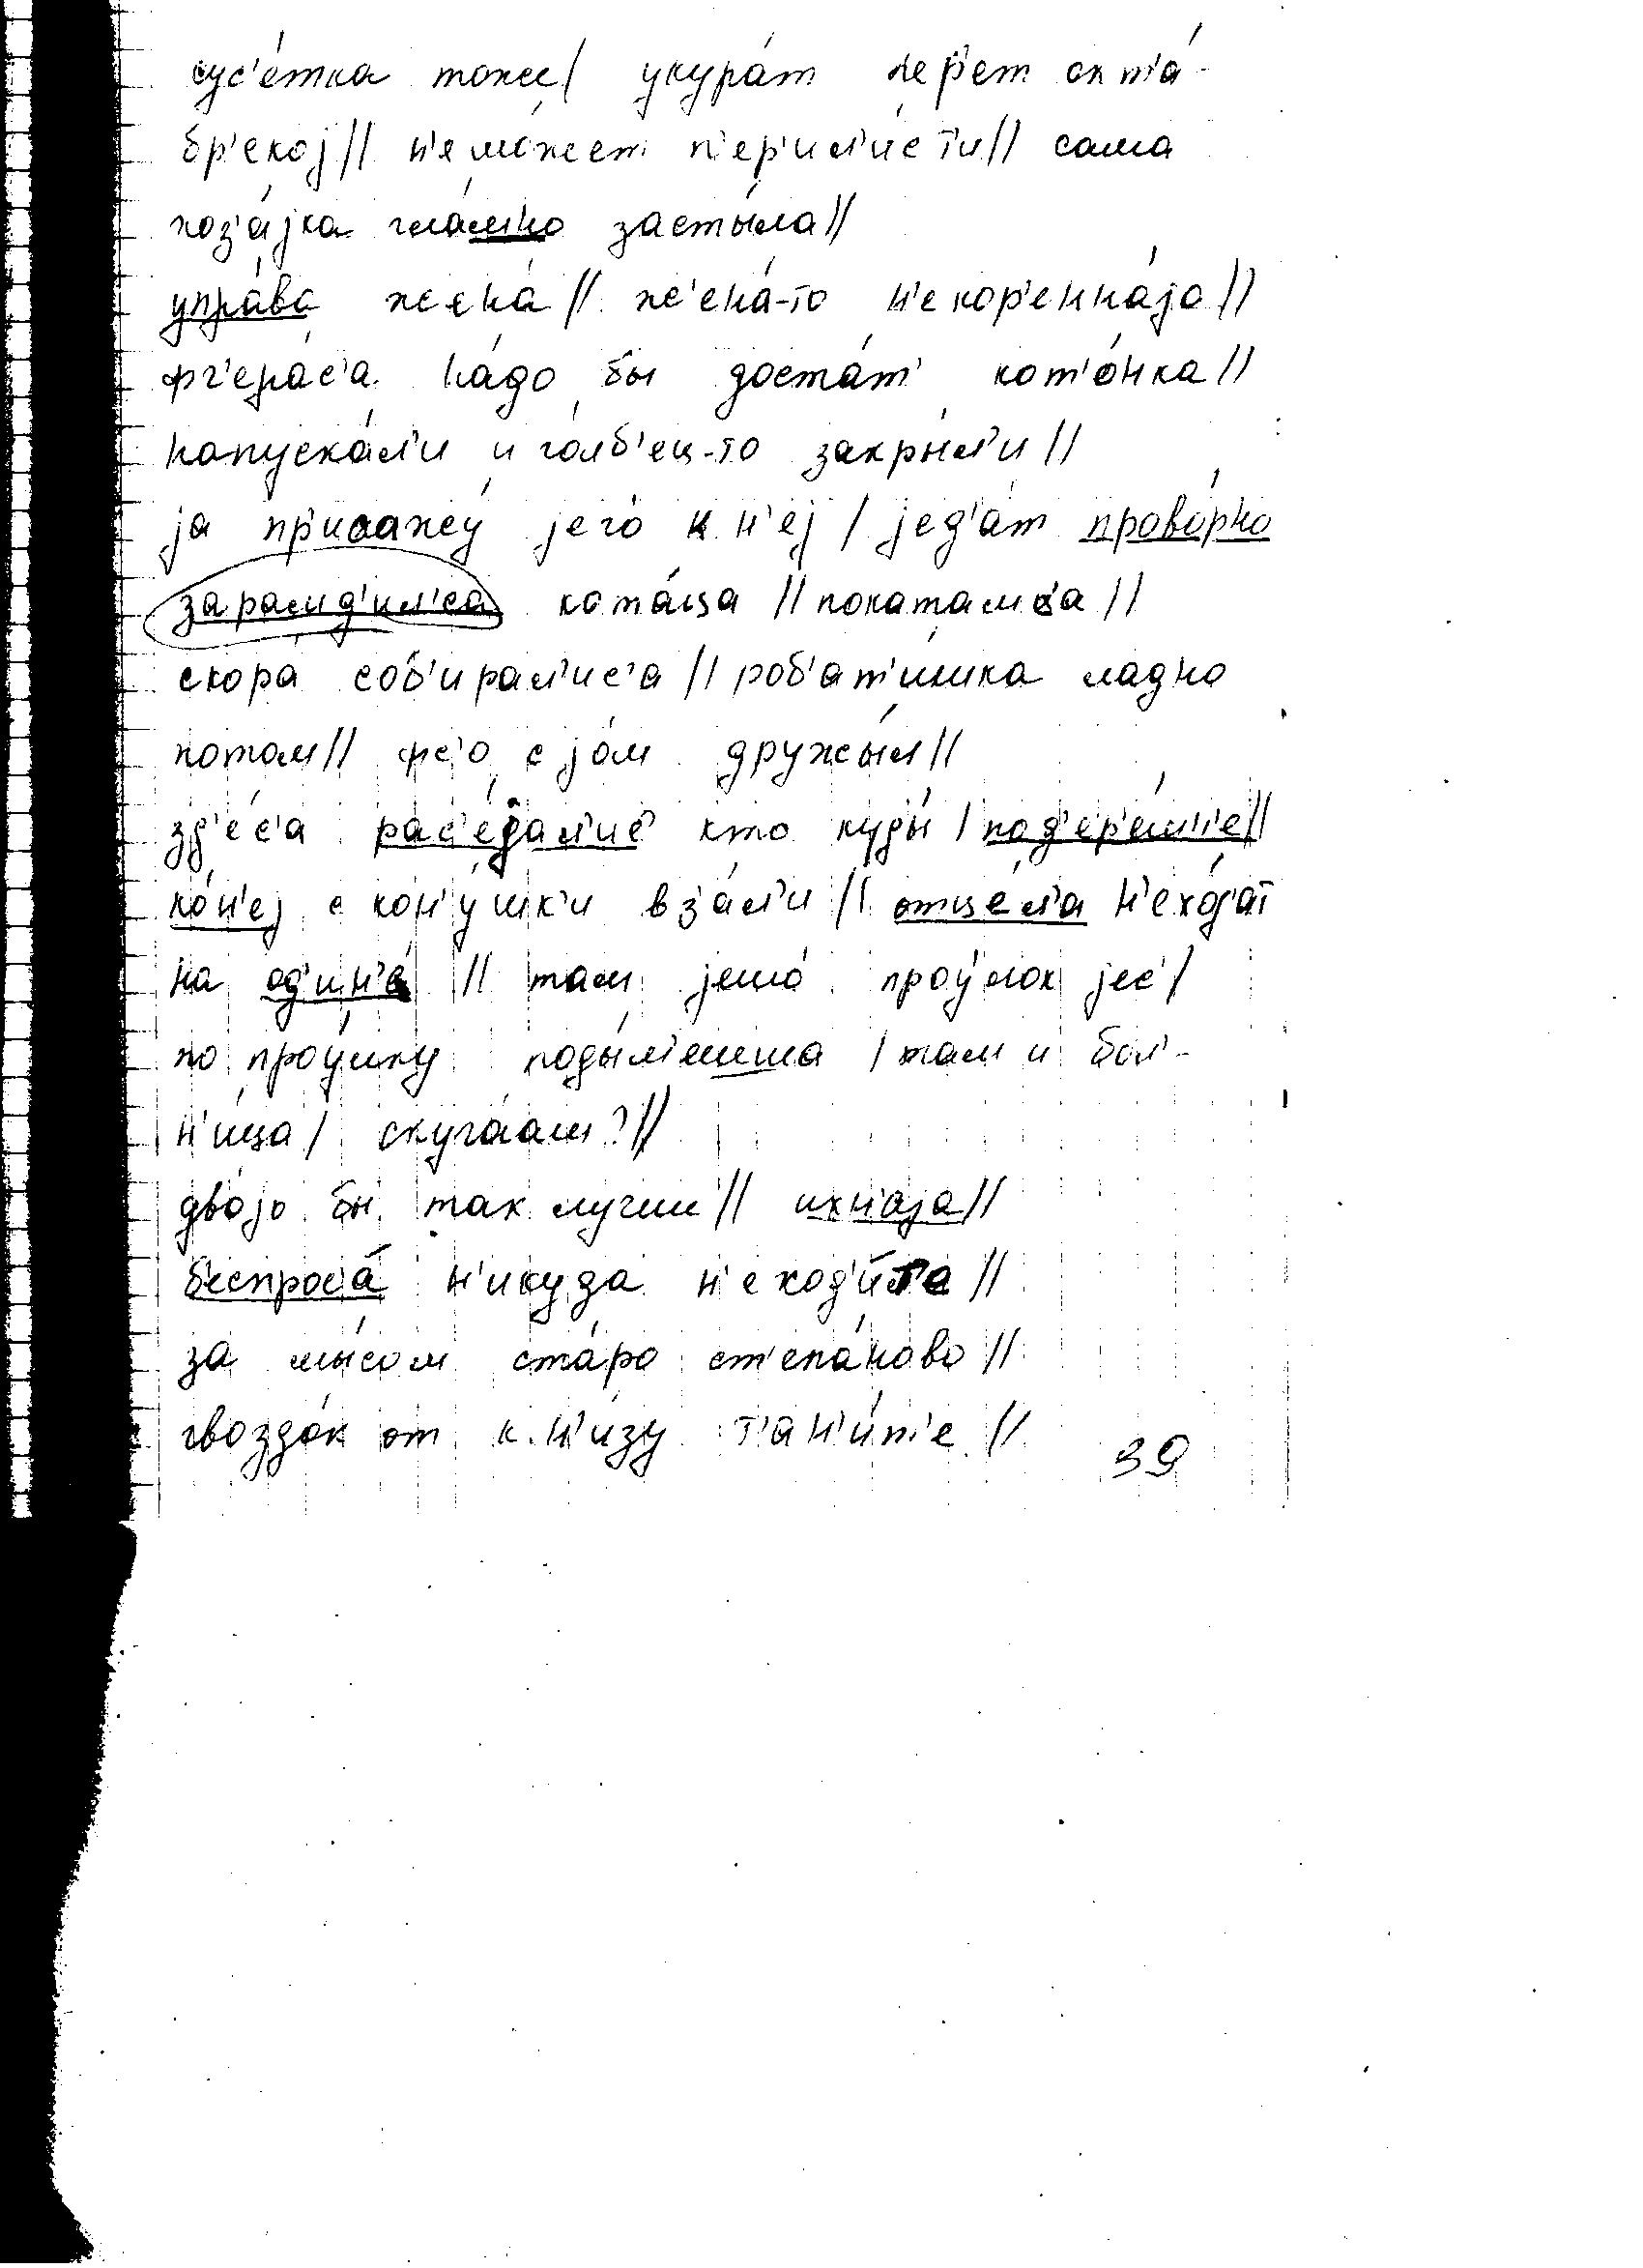 сус'е́тка тожы/ укура́т пер'ет окт'а́-
бр'ской// н'емо́жет п'ер'ил'и́с'ти// сама
хоз'а́јка гла́мно засты́ла//
упра́ва жена́// ж'ена́-то н'екор'енна́jа//
фч'ера́с'а на́до бы доста́т' кот'о́нка//
напуска́л'и и го́лб'ец-то закры́л'и//
jа пр'исажу́ jего́ к н'еj / jед'а́т прово́рно
ката́ца // поката́лс'а //
скора́ соб'ира́л'ис'а // роб'ат'и́шка ладно
потом// фс'о с jо́м дружы́л//
зд'е́с'а рас'е́дал'ис' кто куды́ / под'ер'е́мн'е//
ко́н'еj с кон'у́шк'и вз'а́л'и // отце́л'а н'ехо́д'ат
на од'ин'е́ // там jешо́ проу́лок jес'/
по проу́лку поды́м'ешша / там и бол'-
н'и́ца/ скуча́ам?//
дво́jо бы так лучшы// ихн'аjа//
б'еспроса́ н'икуда н'еход'и́т'е //
за мы́сом ста́ро ст'епа́ново //
гвоздо́к от к н'и́зу т'ан'и́т'е //
39